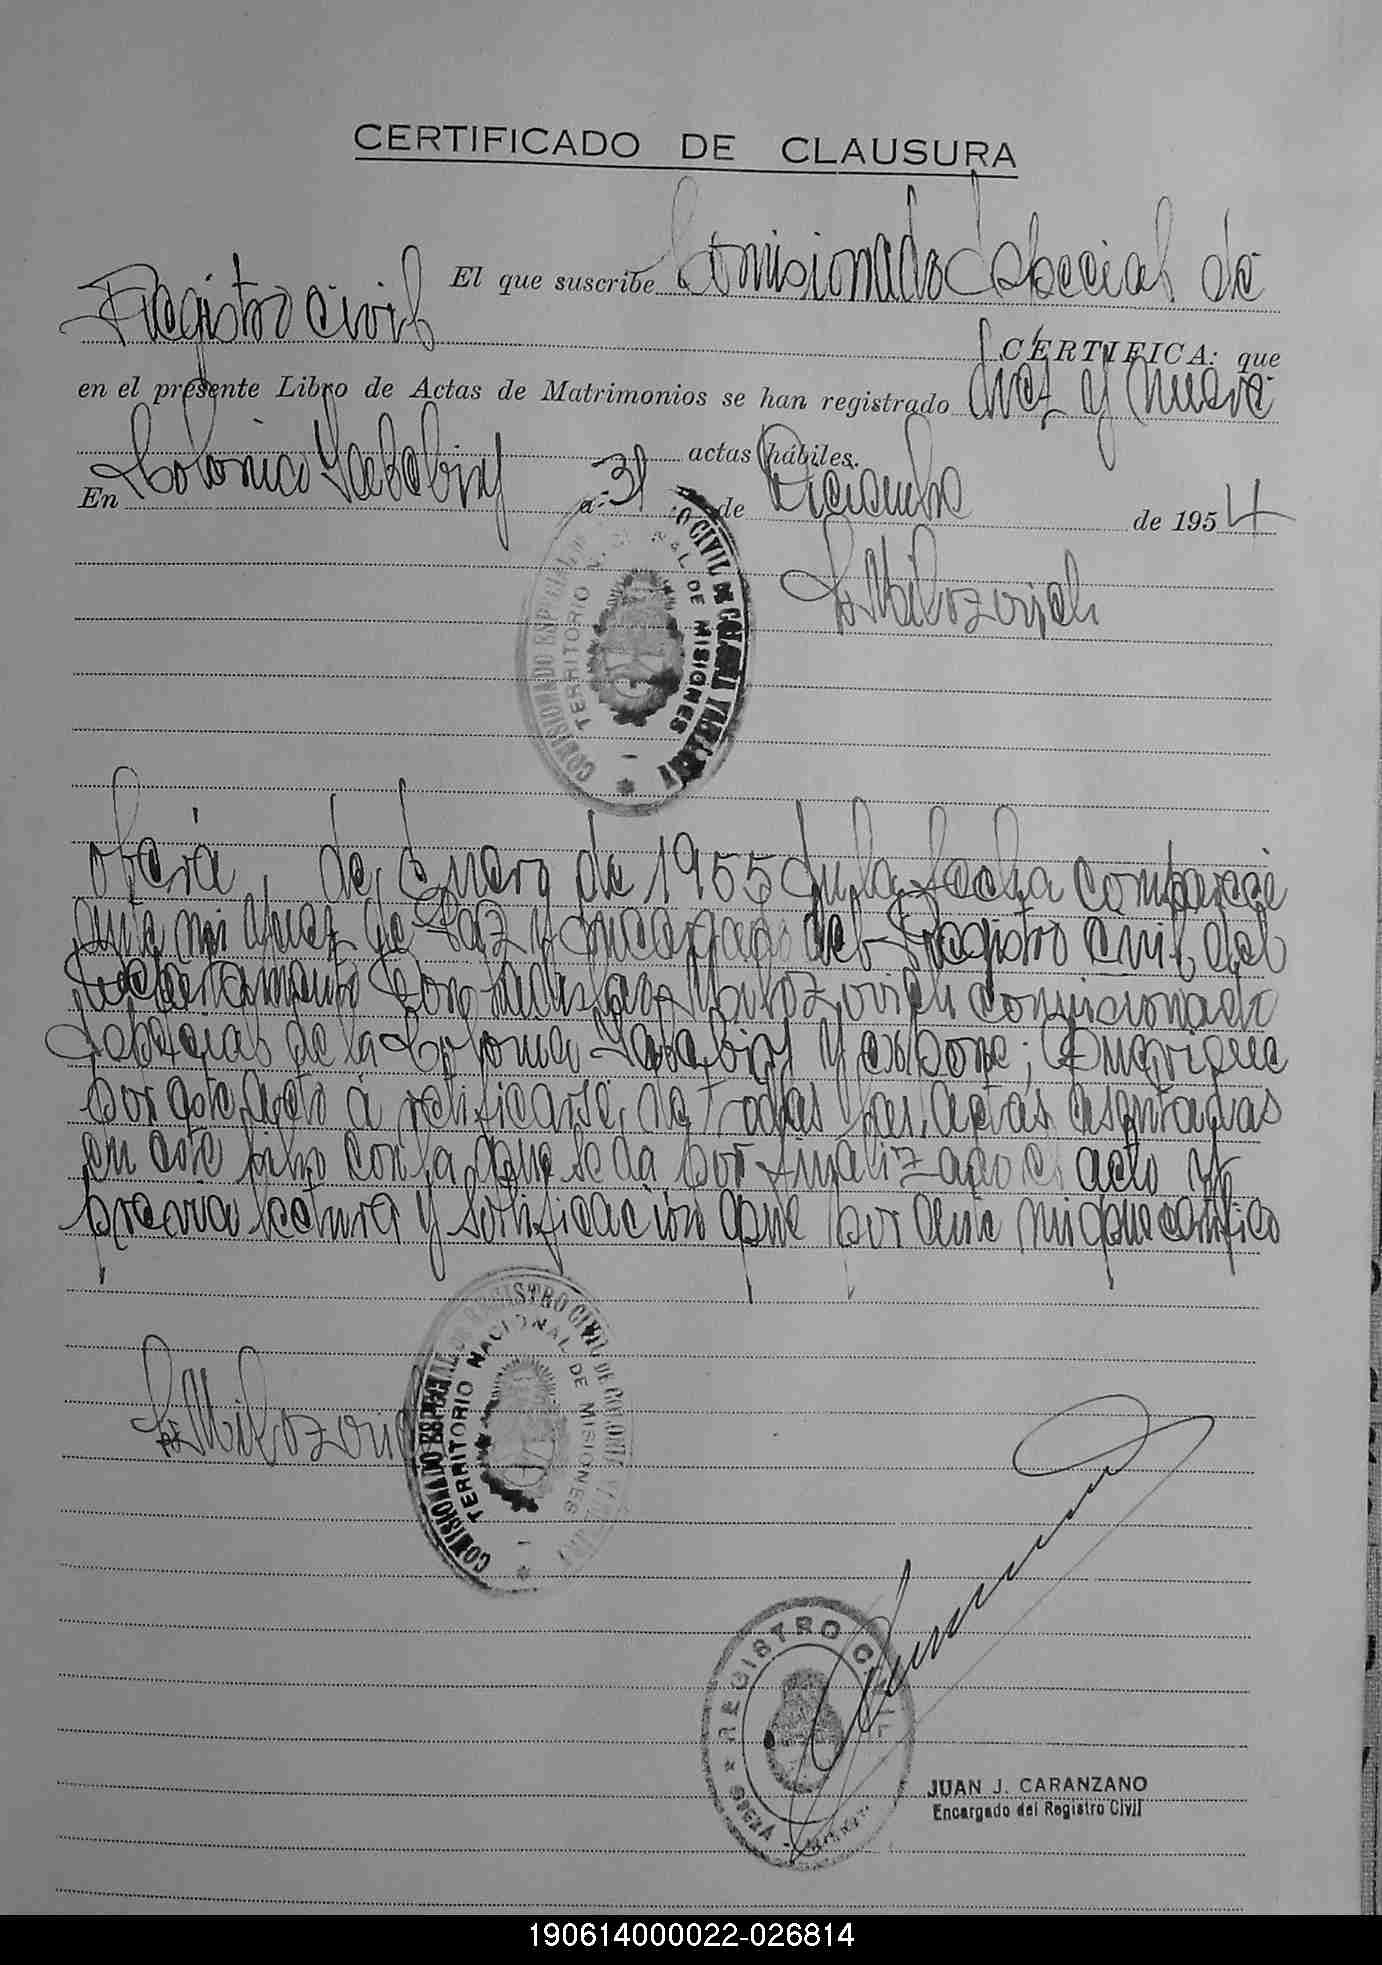 CERTIFICADO DE CLAUSURA
El que suscribe Comisionado Especial de
Registro civil CERTIFICA: que
en el presente Libro de Actas de Matrimonios se han registrado diez y nueve
actas hábiles.
En Colonia Yabebiry a 31 de Diciembre de 1954
COMISIONADO ESPECIAL DE REGISTRO CIVIL DE COLONIA YABEBIRY
TERRITORIO NACIONAL DE MISIONES
oberá, de Enero de 1955 En la fecha comparece
ante mi Juez de Paz y Encargado del Registro Civil del
Departamento Don comisionado
Especial de la Colonia Yabebiry y expone; Que viene
por este acto á retificarse, de todas las, actas asentadas
en este libro con la que se da por finalizado el acto y
previa lectura y ratificación que por ante mi que certifico
COMISIONADO ESPECIAL DE REGISTRO CIVIL DE COLONIA YABEBIRY
TERRITORIO NACIONAL DE MISIONES
REGISTRO CIVIL
OBERA - MISIONES
JUAN J. CARANZANO
Encargado del Registro Civil
190614000022-026814